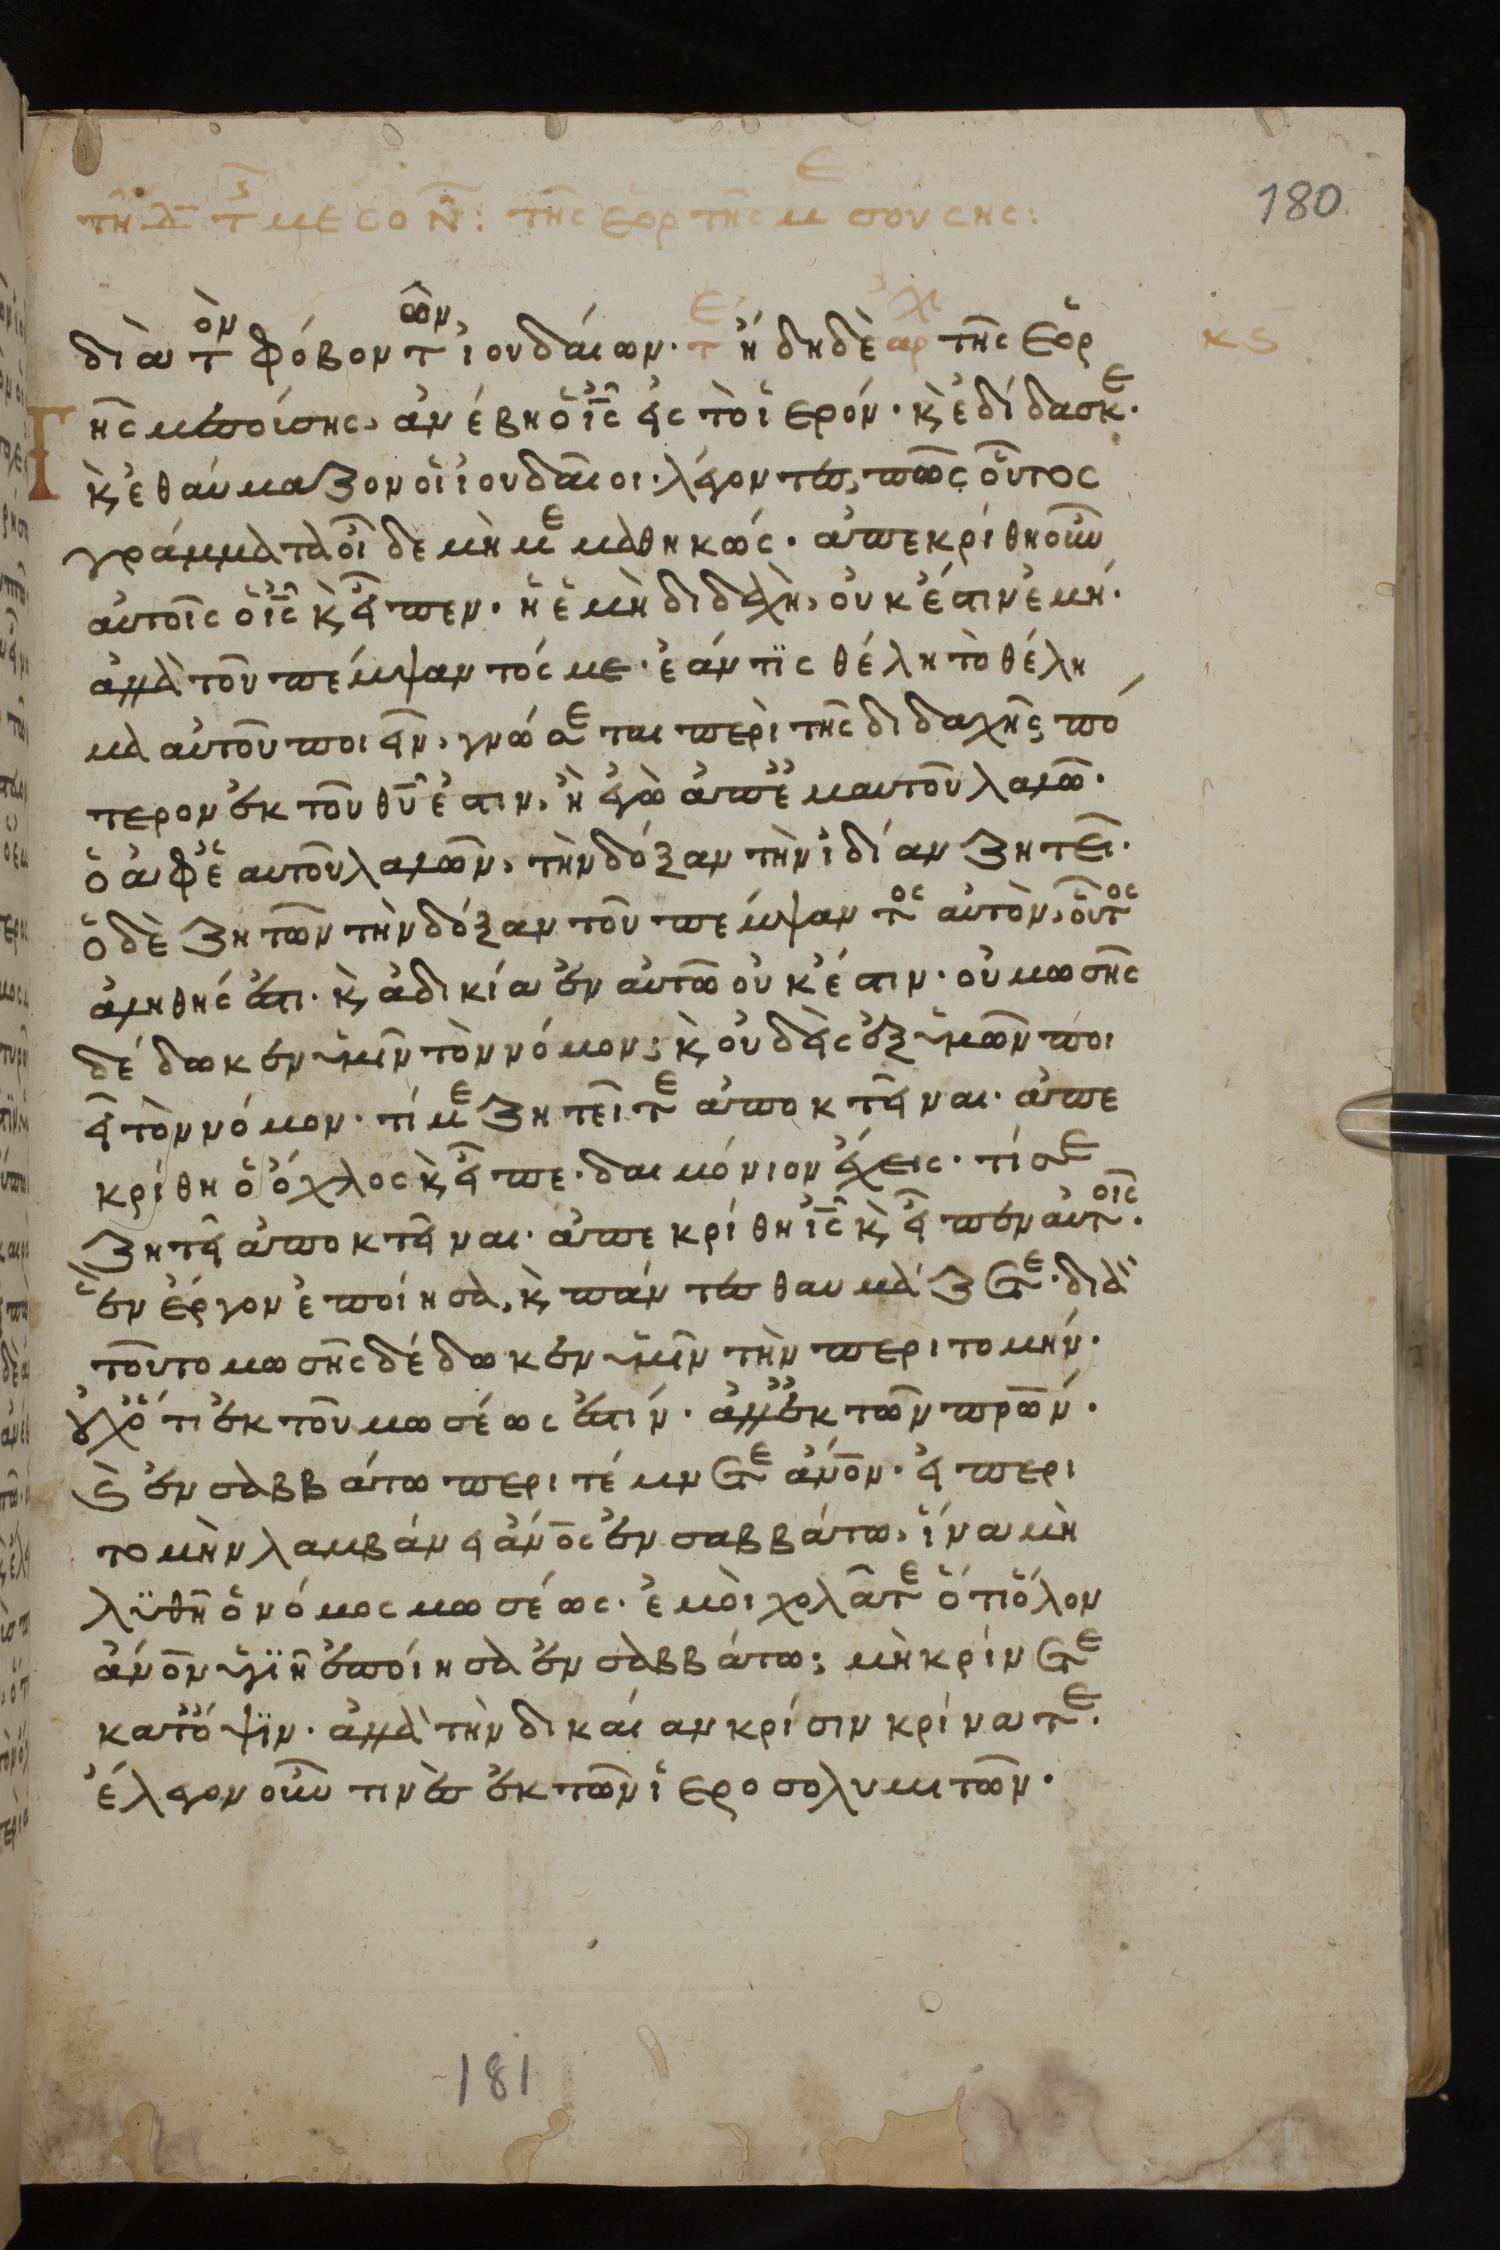 180
τῆ δ τ μεσο ν: τῆς ἑορ τῆς μεσούσης:
διὰ τὸν φόβον τῶν ἰουδαίων· τε ἤδη δὲ αρχ τῆς ἑορ
κς
τῆς μεσούσης, ἀνέβη ὁ ις εἰς τὸ ἱερόν· κ ἐδίδασκε·
κ ἐθαύμαζον οἱ ἰουδαῖοι· λέγοντες, πῶς οὗτος
γράμματα οἶδε μὴ μεμαθηκώς· ἀπεκρίθη οὖν
αὐτοῖς ὁ ις κ εἶπεν· ἡ ἐμὴ διδαχὴ, οὐκ ἔστιν ἐμή·
ἀλλὰ τοῦ πέμψαντός με· ἐάν τις θέλη τὸ θέλη
μα αὐτοῦ ποιεῖν, γνώσεται περὶ τῆς διδαχῆς πό
τερον ἐκ τοῦ θυ ἐστιν, ἢ ἐγὼ ἀπ' ἐμαυτοῦ λαλῶ·
ὁ ἀφ' ἑαυτοῦ λαλῶν, τὴν δόξαν τὴν ἰδίαν ζητεῖ·
ὁ δὲ ζητῶν τὴν δόξαν τοῦ πέμψαντος αὐτὸν, οὗτος
ἀληθής ἐστι· κ ἀδικία ἐν αὐτῶ οὐκ ἔστιν· οὐ μωσῆς
δέδωκεν ὑμῖν τὸν νόμον; κ οὐδεὶς ἐξ ὑμῶν ποι
εῖ τὸν νόμον· τί με ζητεῖτε ἀποκτεῖναι· ἀπε
κρίθη ὁ ὄχλος κ εἶπε· δαιμόνιον ἔχεις· τί σε
ζητεῖ ἀποκτεῖναι· ἀπεκρίθη ις κ εἶπεν αὐτοῖς·
ἓν ἔργον ἐποίησα, κ πάντες θαυμάζετε· διὰ
τοῦτο μωσῆς δέδωκεν ὑμῖν τὴν περιτομήν·
οὐχ ὅτι ἐκ τοῦ μωσέως ἐστίν· ἀλλ' ἐκ τῶν πρων·
κ ἐν σαββάτω περιτέμνετε ἀνον· εἰ περι
τομὴν λαμβάνει ἀνος ἐν σαββάτω, ἵνα μὴ
λυθῆ ὁ νόμος μωσέως· ἐμοὶ χολᾶτε ὅτι ὅλον
ἀνον ὑγιῆ ἐποίησα ἐν σαββάτω; μὴ κρίνετε
κατ' ὄψιν· ἀλλὰ τὴν δικαίαν κρίσιν κρίνατε·
ἔλεγον οὖν τινὲς ἐκ τῶν ἱεροσολυμιτῶν·
181